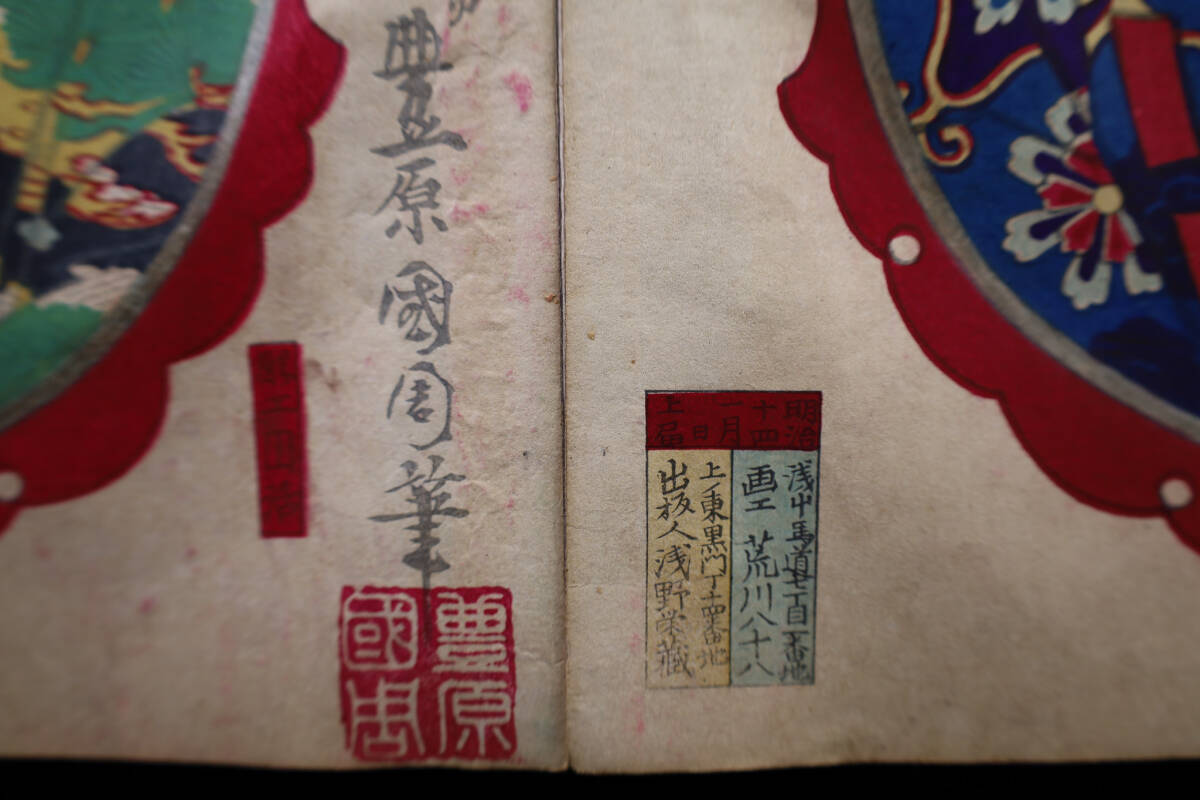 明治
十四
一月
日
上届
浅中馬道七丁目一番地
画工 荒川八十八
上ノ東黒門丁十四番地
出板人 浅野栄蔵
豊原國周筆
豊原
國周